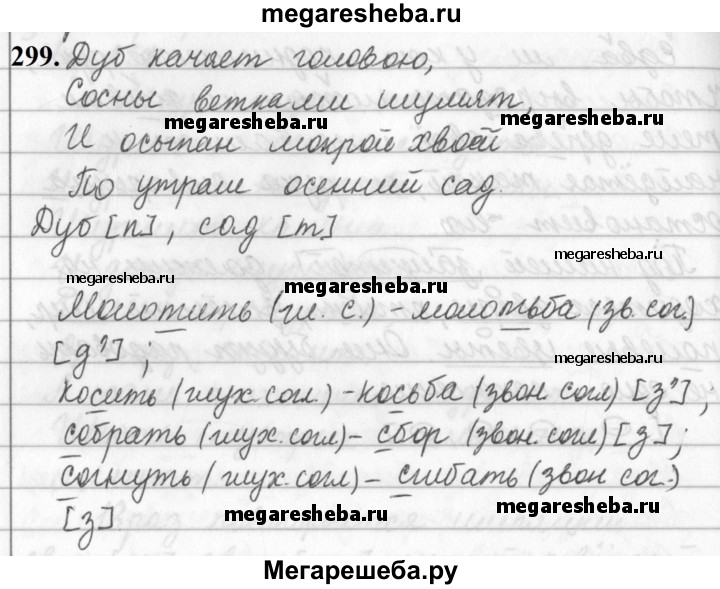 megaresheba.ru
299. Дуб качает головою,
Сосны ветками шумят,
megaresheba.ru
megaresheba.ru
И осыпан мокрой хвоей
По утрам осенний сад.
Дуб [п], сад [т]
megaresheba.ru
megaresheba.ru
megaresheba.ru
Молотить (гл. с.) - молотьба (зв. сог.)
[д'];
megaresheba.ru
косить (глух. согл.) - косьба (звон. согл) [з'],
собрать (глух. согл) - сбор (звон. согл) [з];
согнуть (глух. согл) - сгибать (звон сог.)
[з]
megaresheba.ru
megaresheba.ru
Мегарешеба.ру